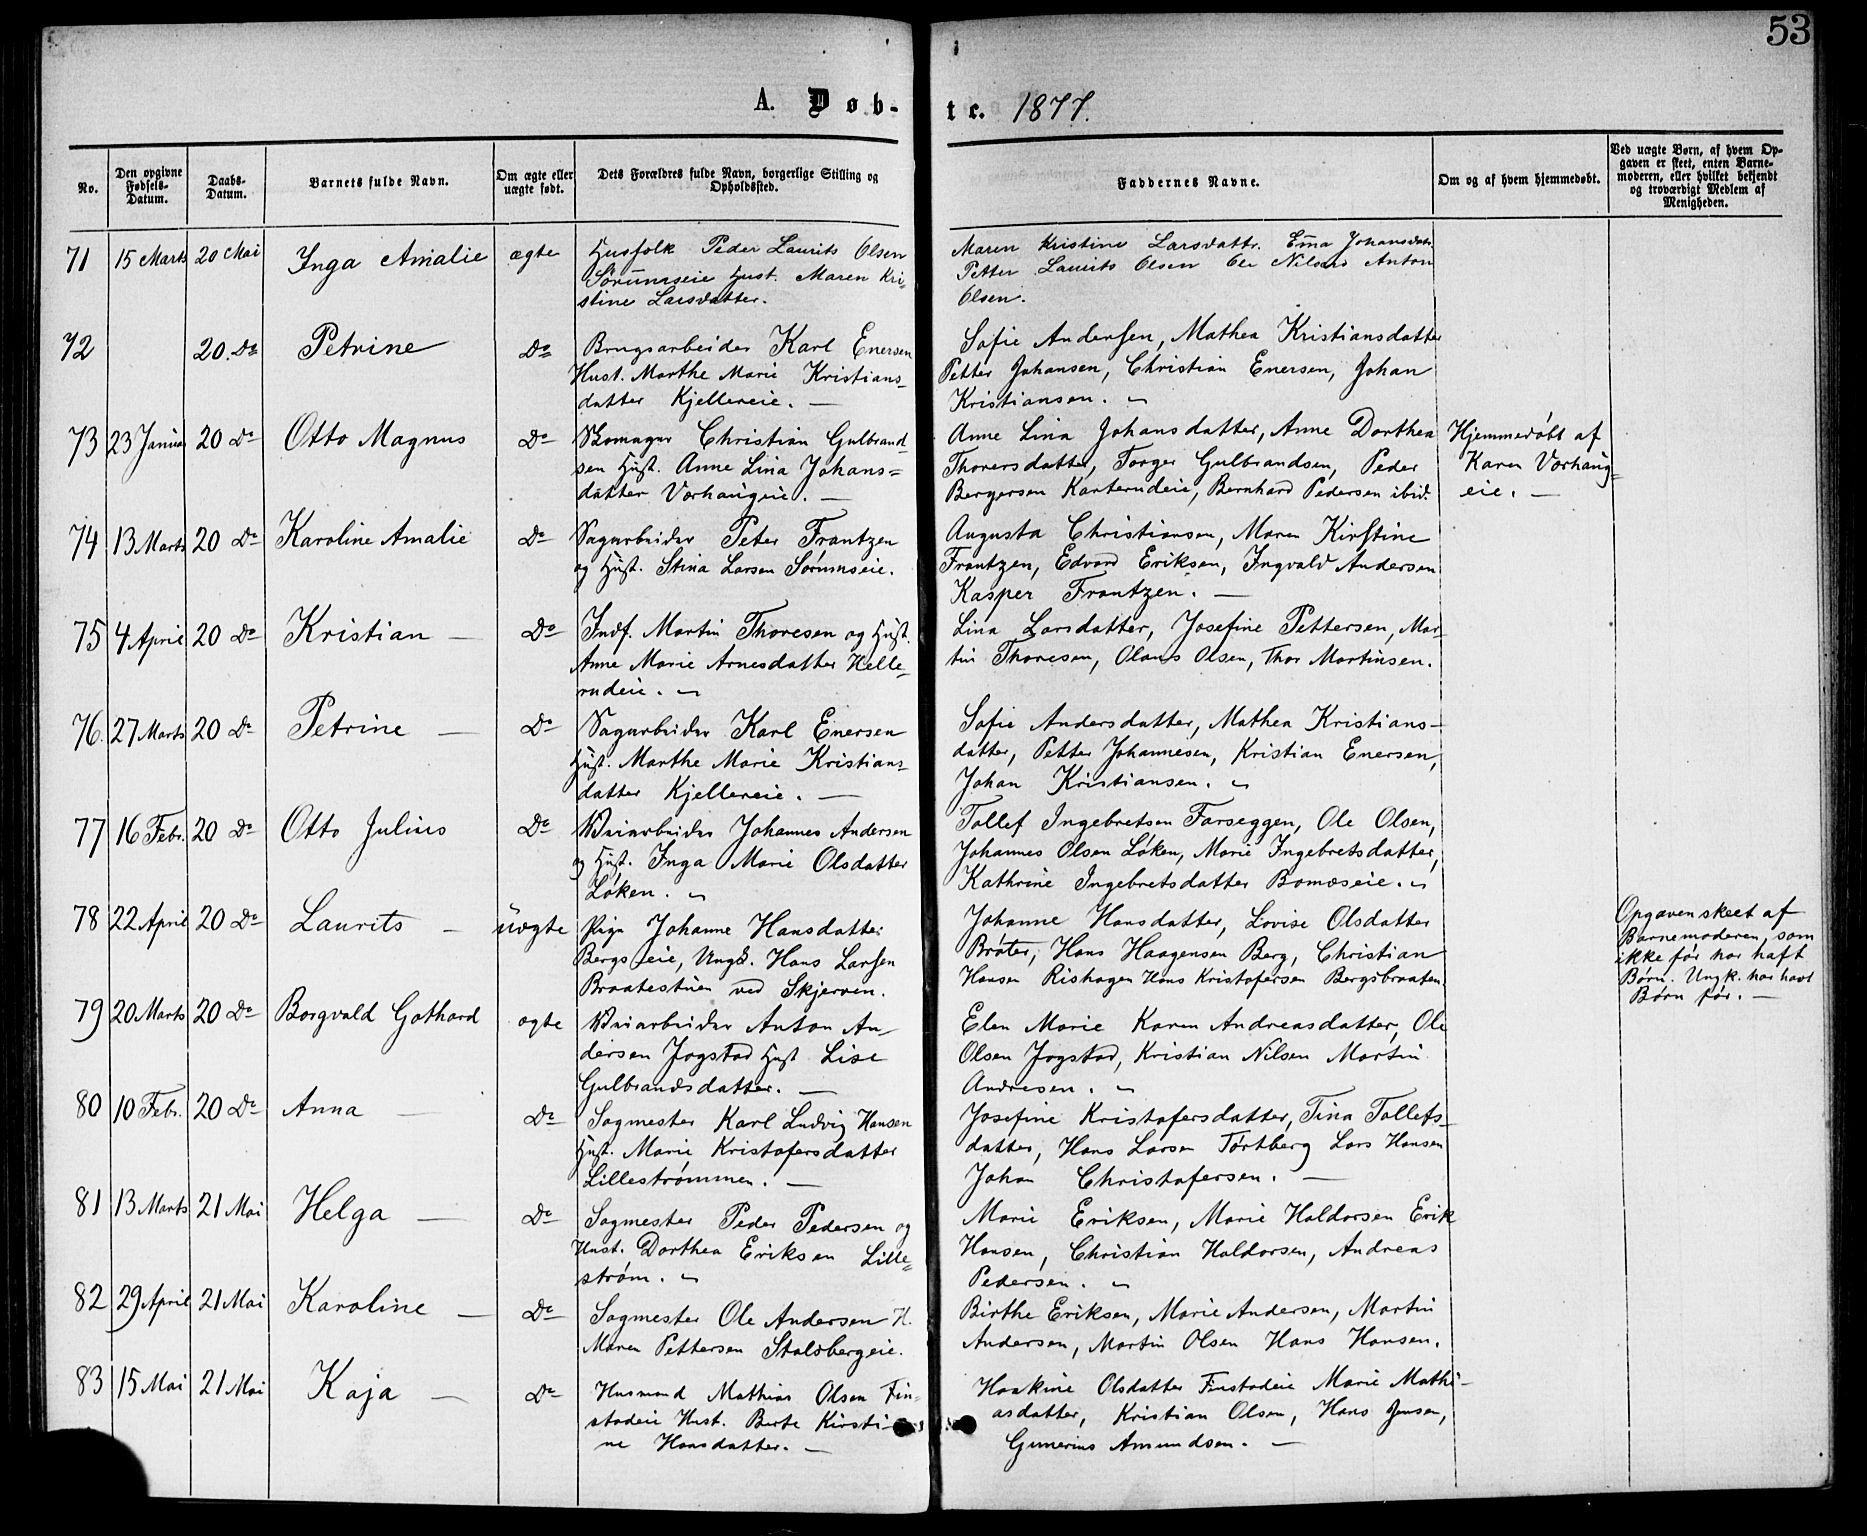 53
A. Døb-
te. 1877.
No.
Den opgivne Fødsels-Datum.
Daabs-Datum.
Barnets fulde Navn.
Om ægte eller uægte født.
Dets Forældres fulde Navn, borgerlige Stilling og Opholdssted.
Faddernes Navne.
Om og af hvem hjemmedøbt.
Ved uægte Børn, af hvem Op-
gaven er skeet, enten Barne-
moderen, eller hvilket bekjendt
og troværdigt Medlem af
Menigheden.
71 15 Marts 20 Mai Inga Amalie ægte
Husfolk Peder Laurits Olsen
Sørumseie Hust. Maren Kri-
stine Larsdatter.
Maren Kristine Larsdattr. Ema Johansdatr.
Petter Laurits Olsen Ole Nilsens Anton
Olsen.
72 20. Do Petrine Do
Brugsarbeider Karl Enersen
Hust. Marthe Marie Kristians-
datter Kjellereie. —
Sofie Andersen, Mathea Kristiansdatter
Petter Johansen, Christian Enersen, Johan
Kristiansen.
73 23 Januar 20 Do Otto Magnus Do
Skomager Christian Gulbrand-
sen Hust. Anne Lina Johans=
datter Vorhaugeie. —
Anne Lina Johansdatter, Anne Dorthea
Thorersdatter, Torger Gulbrandsen, Peder
Bergersen Karterudeie, Bernhard Pedersen ibid.
Hjemmedøbt af
Karen Vorhaug=
eie. —
74 13 Marts 20 Do Karoline Amalie Do
Sagarbeider Peter Frantzen
og Hust. Stina Larsen Sørumseie.
Augusta Christiansen, Maren Kirstine
Frantzen, Edvard Eriksen, Ingvald Andersen
Kasper Frantzen. —
75 4 April 20 Do Kristian — Do
Indf. Martin Thoresen og Hust.
Anne Marie Arnesdatter Helle-
rudeie.
Lina Larsdatter, Josefine Pettersen, Mar-
tin Thoresen, Olaus Olsen, Thor Martinsen.
76. 27 Marts 20 Do Petrine — Do
Sagarbeider Karl Enersen
Hust. Marthe Marie Kristians-
datter Kjellereie. —
Sofie Andersdatter, Mathea Kristians-
datter, Petter Johannesen, Kristian Enersen,
Johan Kristiansen.
77 16 Febr. 20 Do Otto Julius Do
Veiarbeider Johannes Andersen
og Hust. Inga Marie Olsdatter
Løken.
Tollef Ingebretsen Farseggen, Ole Olsen,
Johannes Olsen Løken, Marie Ingebretsdatter,
Kathrine Ingebretsdatter Bomaseie.
78 22 April 20 Do Laurits — uægte
Pige Johanne Hansdatter
Bergseie, Ungk. Hans Larsen
Braatestuen ved Skjerven.
Johanne Hansdatter, Lovise Olsdatter
Brøter, Hans Haagensen Berg, Christian
Hansen Rishagen Hans Kristofersen Bergsbraaten
Opgaven skeet af
Barnemoderen, som
ikke før har haft
Børn. Ungk. har havt
Børn før. —
79 20 Marts 20 Do Borgvald Gothard ægte
Veiarbeider Anton An-
dersen Jogstad Hust Lise
Gulbrandsdatter. —
Elen Marie Karen Andreasdatter, Ole
Olsen Jogstad, Kristian Nilsen Martin
Andresen.
80 10 Febr. 20 Do Anna — Do
Sagmester Karl Ludvig Hansen
Hust. Marie Kristofersdatter
Lillestrømmen. —
Josefine Kristofersdatter, Tina Tollefs-
datter, Hans Larsen Tørtberg Lars Hansen
Johan Christofersen. —
81 13 Marts 21 Mai Helga — Do
Sagmester Peder Pedersen og
Hust. Dorthea Eriksen Lille=
strøm.
Marie Eriksen, Marie Haldorsen Erik
Hansen, Christian Haldorsen, Andreas
Pedersen.
82 29 April 21 Mai Karoline — Do
Sagmester Ole Andersen H.
Maren Pettersen Stalsbergeie.
Birthe Eriksen, Marie Andersen, Martin
Andersen, Martin Olsen Hans Hansen.
83 15 Mai 21 Mai Kaja — Do
Husmand Mathias Olsen Fin-
stadeie Hust. Berte Kirsti-
ne Hansdatter. —
Haakine Olsdatter Finstadeie Marie Mathi-
asdatter, Kristian Olsen, Hans Jensen,
Gunerius Amundsen. —